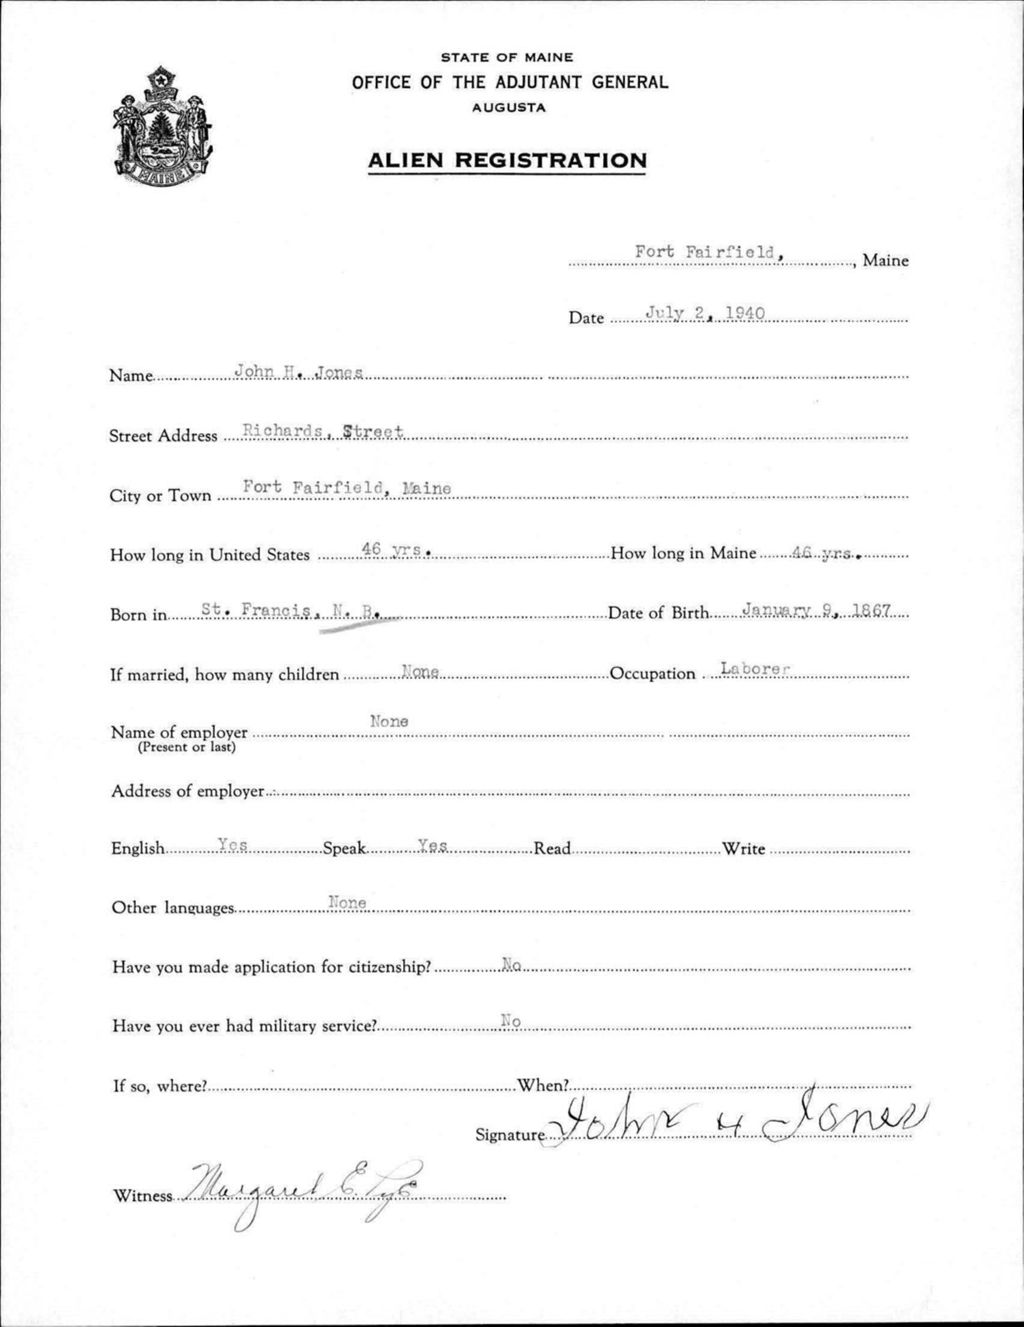 STATE OF MAINE
OFFICE OF THE ADJUTANT GENERAL
AUGUSTA
ALIEN REGISTRATION
MAINE
Fort Fairfield, , Maine
Date July 2, 1940
Name John H. Jones
Street Address Richards, Street
City or Town Fort Fairfield, Maine
How long in United States 46 yrs. How long in Maine 46 yrs.
Born in St. Francis, N. B. Date of Birth January 9, 1867
If married, how many children None Occupation Laborer
Name of employer None
(Present or last)
Address of employer
English Yes Speak Yes Read Write
Other languages None
Have you made application for citizenship? No
Have you ever had military service? No
If so, where? When?
Signature John H Jones
Witness Margaret E. Pye